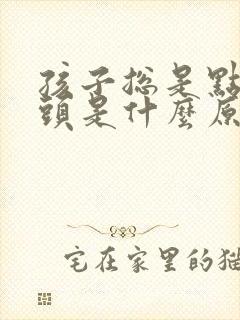 孩子總是點
頭是什麼原
宅在家里的猫